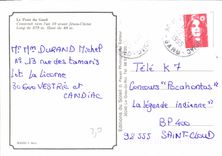 Le Pont du Gard
Construit vers l'an 19 avant Jésus-Christ
Long de 273 m. Haut de 49 m.
Mr Mme DURAND Michel
N°13 rue des Camaris
Lot La licorne
30600 VESTRIC et
CANDIAC
Télé K7
Concours "Pocahontas"
La légende indienne"
BP 400
92555 SAINT-CLOUD